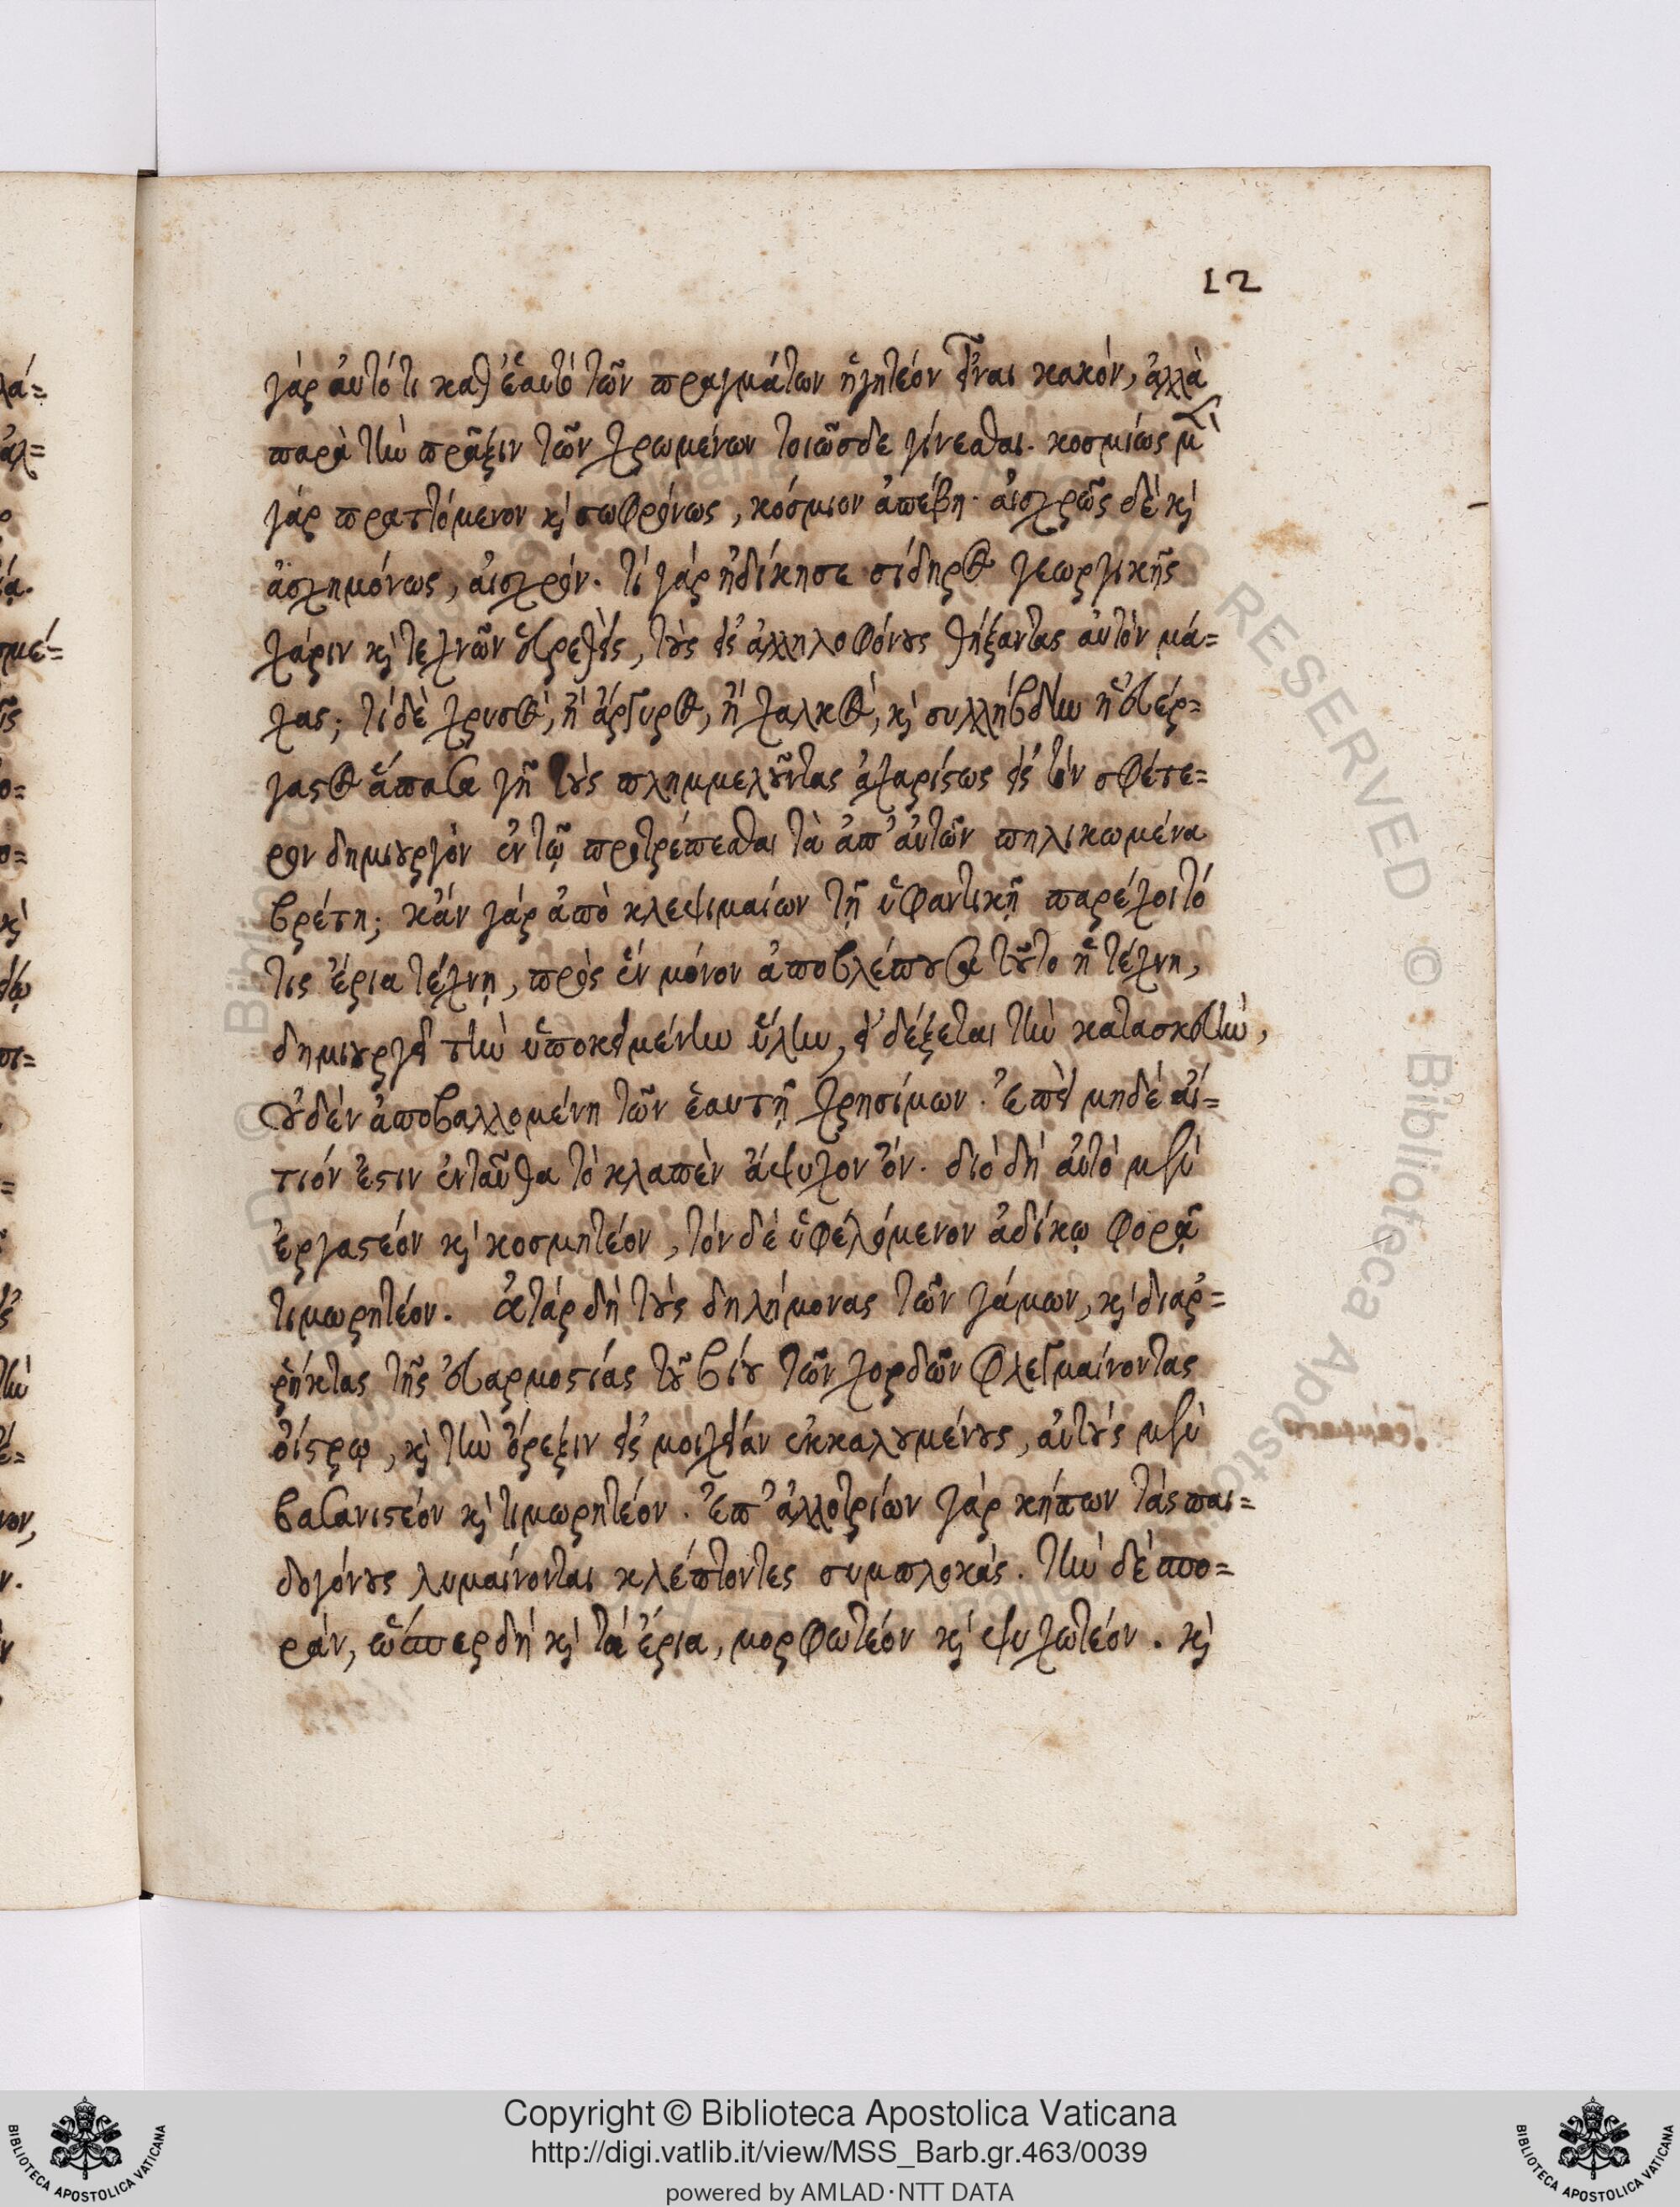 12
γὰρ αὐτό τι καθ' ἑαυτὸ τῶν πραγμάτων ἡγητέον εἶναι κακόν, ἀλλὰ
παρὰ τὴν πρᾶξιν τῶν χρωμένων τοιῶσδε γίνεσθαι. κοσμίως μὲν
γὰρ πραττόμενον κỳ σωφρόνως, κόσμιον ἀπέβη· αἰσχρῶς δὲ κỳ
ἀσχημόνως, αἰσχρόν. τί γὰρ ἠδίκησε σίδηρος γεωργικῆς
χάριν κỳ τεχνῶν εὑρεθεὶς, τοὺς εἰς ἀλληλοφόνους θήξαντας αὐτὸν μά=
χας; τί δὲ χρυσὸς, ἢ ἄργυρος, ἢ χαλκὸς, κỳ συλλήβδην ἡ εὐέρ=
γαστος ἅπασα γῆ τοὺς πλημμελοῦντας ἀχαρίστως εἰς τὸν σφέτε=
ρον δημιουργὸν ἐν τῷ προτρέπεσθαι τὰ ἀπ' αὐτῶν πηλικωμένα
βρέτη; κἂν γὰρ ἀπὸ κλεψιμαίων τῇ ὑφαντικῇ παρέχοιτό
τις ἔρια τέχνῃ, πρὸς ἓν μόνον ἀποβλέπουσα τοῦτο ἡ τέχνη,
δημιουργεῖ τὴν ὑποκειμένην ὕλην, εἰ δέξεται τὴν κατασκευὴν,
οὐδὲν ἀποβαλλομένη τῶν ἑαυτῇ χρησίμων. ἐπεὶ μηδὲ αἴ=
τιόν ἐστιν ἐνταῦθα τὸ κλαπὲν ἄψυχον ὄν. διὸ δὴ αὐτὸ μὲν
ἐργαστέον κỳ κοσμητέον, τὸν δὲ ὑφελόμενον ἀδίκῳ φορᾷ
τιμωρητέον. ἀτὰρ δὴ τοὺς δηλήμονας τῶν γάμων, κỳ διαρ=
ρήκτας τῆς εὐαρμοστίας τοῦ βίου τῶν χορδῶν φλεγμαίνοντας
οἴστρῳ, κỳ τὴν ὄρεξιν εἰς μοιχείαν ἐκκαλουμένους, αὐτοὺς μὲν
βασανιστέον κỳ τιμωρητέον. ἐπ' ἀλλοτρίων γὰρ κήπων τὰς παι=
δογόνους λυμαίνονται κλέπτοντες συμπλοκάς. τὴν δὲ σπο=
ρὰν, ὥσπερ δὴ κỳ τὰ ἔρια, μορφωτέον κỳ ψυχωτέον. κỳ
Copyright © Biblioteca Apostolica Vaticana
http://digi.vatlib.it/view/MSS_Barb.gr.463/0039
powered by AMLAD·NTT DATA
BIBLIOTECA APOSTOLICA VATICANA
BIBLIOTECA APOSTOLICA VATICANA